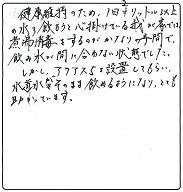 健康維持のため、1日2リットル以上
の水を飲もうと心掛けている我が家では、
煮沸消毒をするのがかなりの手間で、
飲み水が間に合わない状態でした。
しかし、アクアスSを設置してもらい、
水道水がそのまま飲めるようになり、とても
助かっています。